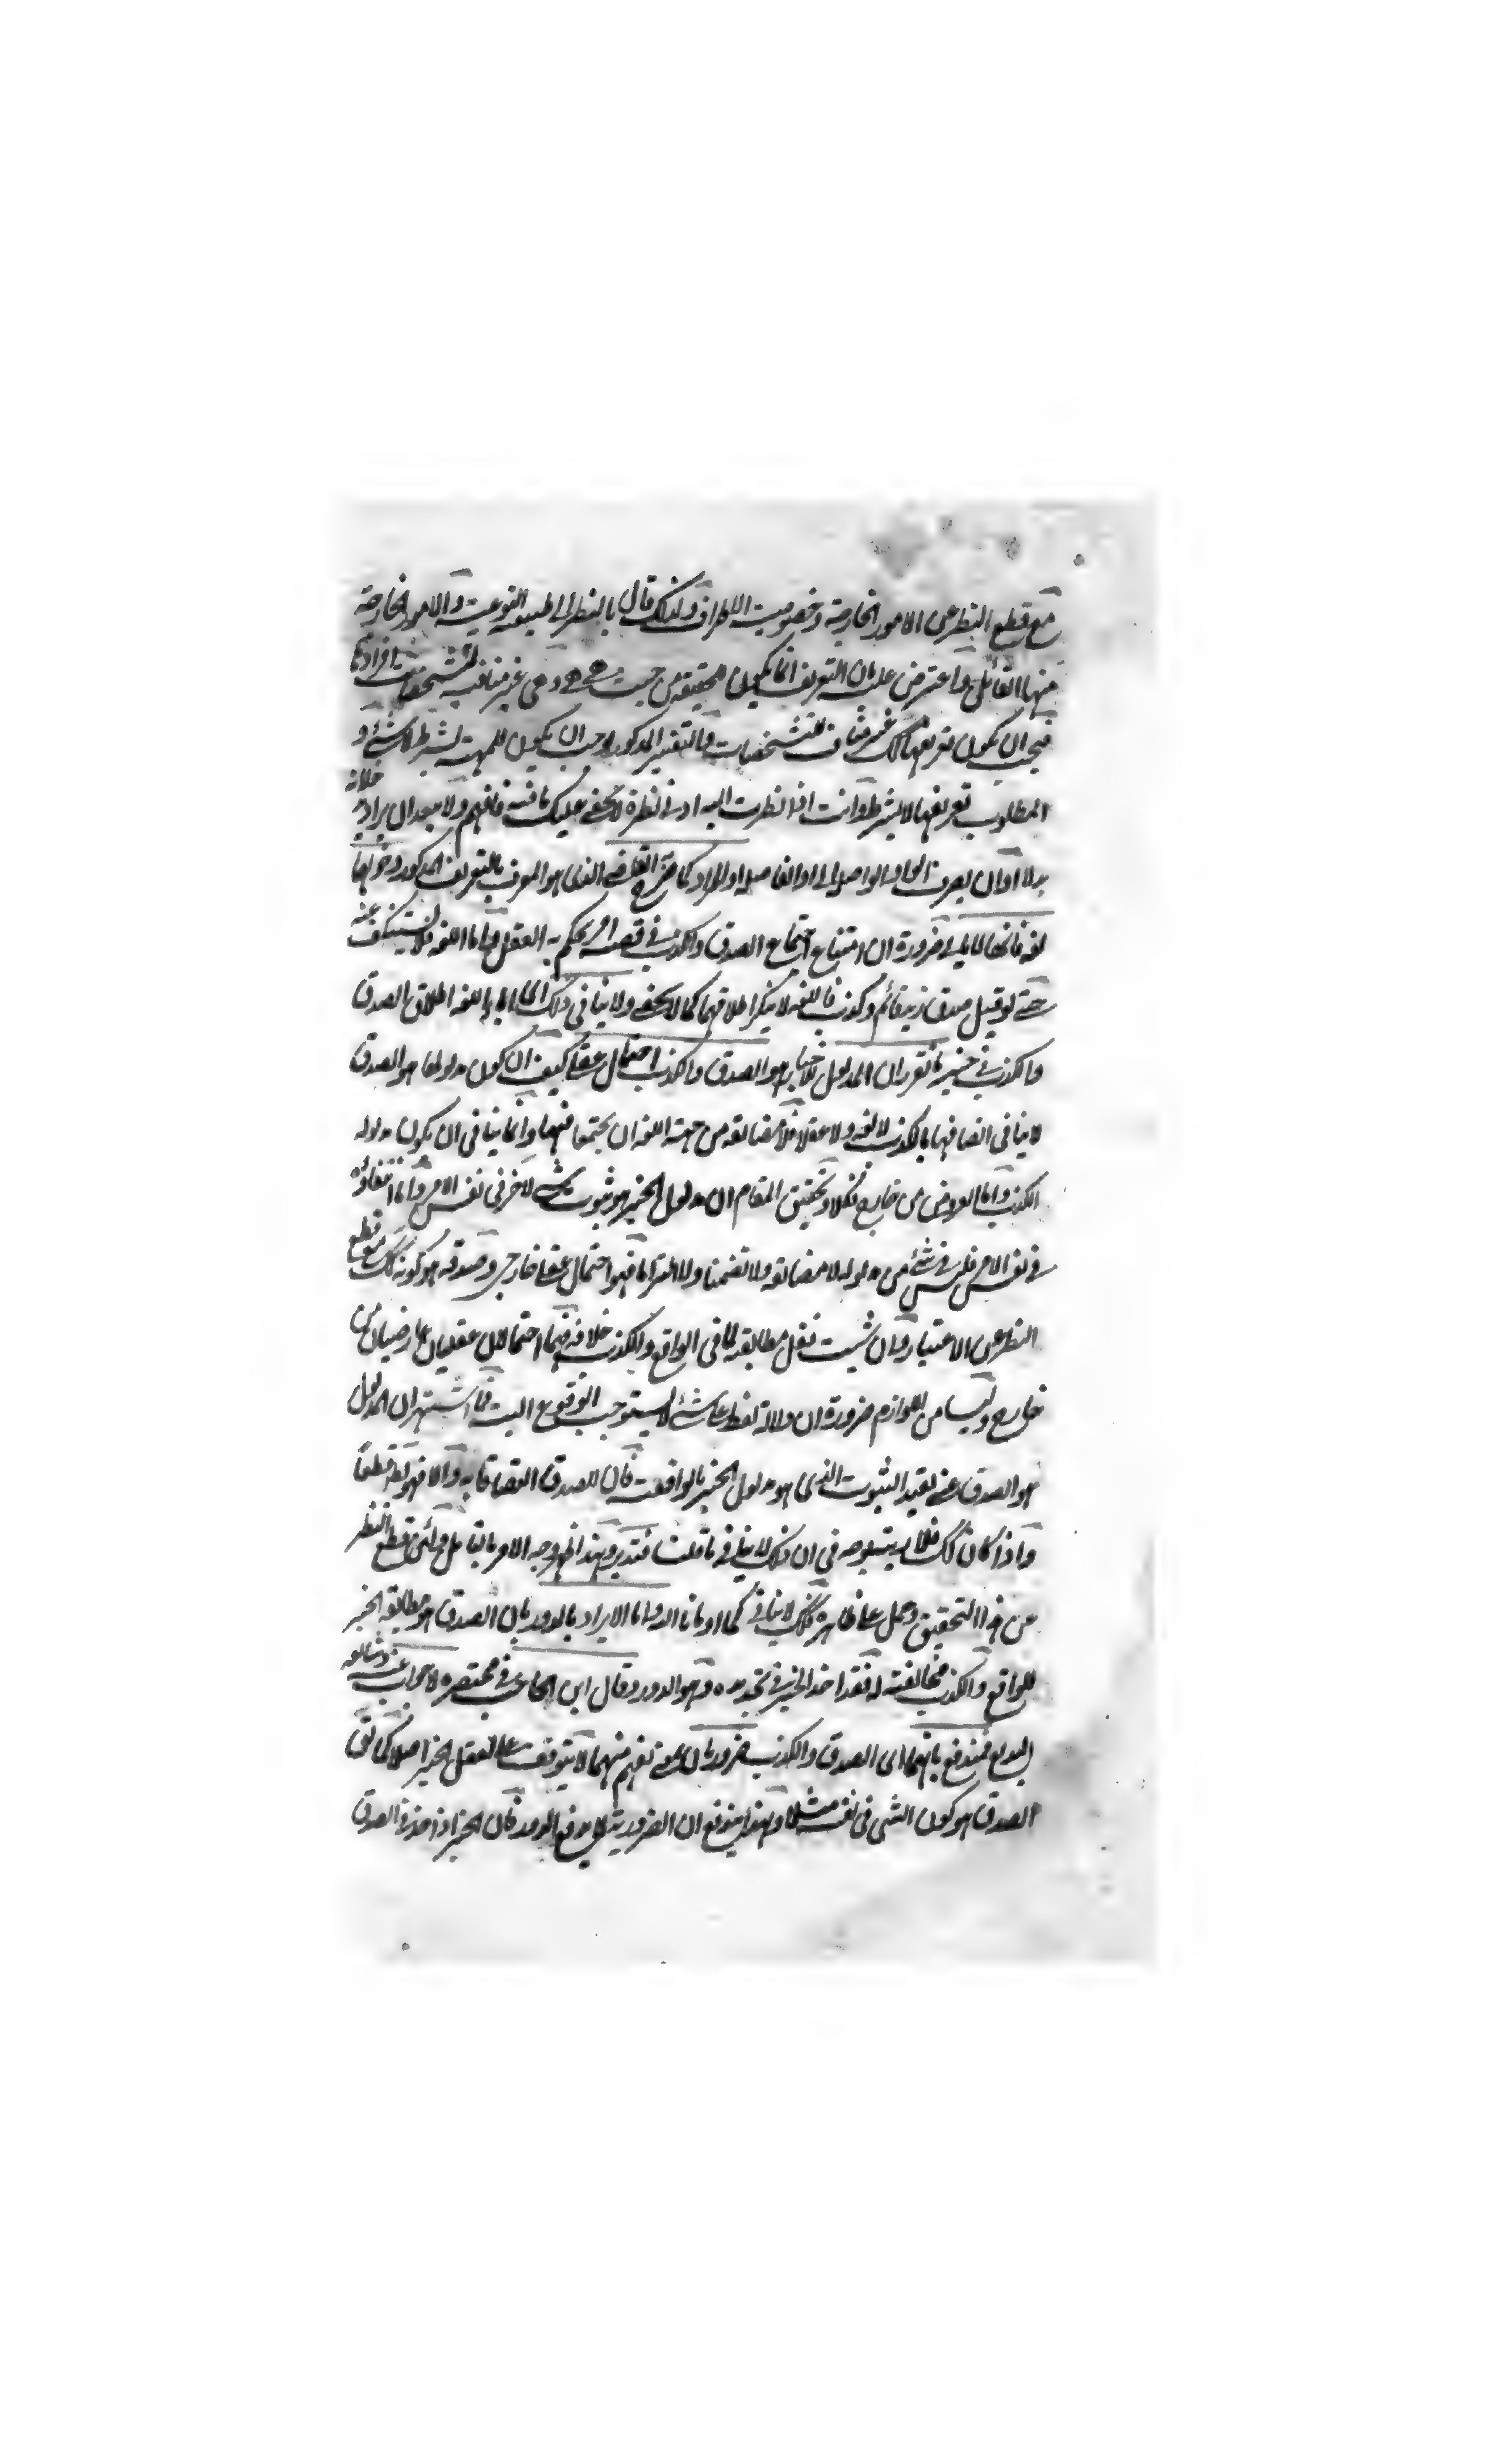 مع قطع النظر عن الامور الخارجة وخصوصية الاطراف ولذلك قال بالنظر الى طبيعته النوعية والامور الخارجة
منها القائل واعترض عليه بان التعريف انما يكون للحقيقة من حيث هي هي وهي غير منافية لتشخصات افرادها
فيجب ان يكون تعريفها كك غير مناف للتشخصات والتفسير المذكور اوجب ان يكون للمهية بشرط لا شئ و
المطلوب تعريفها لا بشرط وانت اذا نظرت اليه ادنى نظرة لا يخفى عليك ما فيه فافهم ولا يبعد ان يراد خلافه
بدلا او ان يصرف الواو الواصلة الى او الفاصلة او المراد كما صرح القاضي الذي هو المعرف بالتعريف المذكور دخولهما
لغة فانها لا يابى ضرورة ان امتناع اجتماع الصدق والكذب في قضية امر يحكم به العقل واما اللغة فلا يستنكف عنه
حتى لو قيل صدق زيد قائم وكذب فاللغة لا ينكر اطلاقهما كما لا يخفى ولا ينافي ذلك اى اباء اللغة اطلاق الصدق
والكذب في خبر ما تقرر ان المدلول للاخبار هو الصدق والكذب احتمال عقلي كيف ان كون مدلولها هو الصدق
لا ينافي اتصافها بالكذب لا لغة ولا عقلا فلا مضائقة من جهة اللغة ان يجتمعا فيها وانما ينافي ان يكون مدلوله
الكذب واما العروض من خارج فكلا وتحقيق المقام ان مدلول الخبر هو ثبوت شئ لاخر في نفس الامر واما انتفاؤه
في نفس الامر فليس في شئ من مدلوله لا مطابقة ولا تضمنا ولا التزاما فهو احتمال عقلي خارجي وصدقه هو كونه كك مع قطع
النظر عن الاعتبار وان شئت فقل مطابقة لما في الواقع والكذب خلافه فهما احتمالان عقليان عارضيان من
خارج وليسا من اللوازم ضرورة ان دلالة لفظ على شئ لا يستوجب الوقوع البتة فما اشتهر ان المدلول
هو الصدق عني تقيد الثبوت الذي هو مدلول الخبر بالواقعية فان للصدق التصاقا به والا فهو غلط قطعا
واذا كان كك فلا ريبة بوجه في ان ذلك لا ينافي ما قلت فتدبر وبهذا ظهر وجه الامر بالتامل ولئن قطع النظر
عن هذا التحقيق وحمل على ظاهره فكك لا ينافي كما اومأنا اليه واما الايراد بالدور بان الصدق هو مطابقة الخبر
للواقع والكذب مخالفته له فقد اخذ الخبر في تحديده وهو الدور وقال ابن الحاجب في مختصره لا جواب عنه وتابعه
البديع فمندفع بانهما اى الصدق والكذب ضروريان بمعنى تفهم منهما لا يتوقف على تعقل الخبر اصلا كما تقى
الصدق هو كون الشئ في نفسه مثلا وبهذا يندفع ان الضرورية لا يدفع الدور فان الخبر اذا اخذ في الصدق